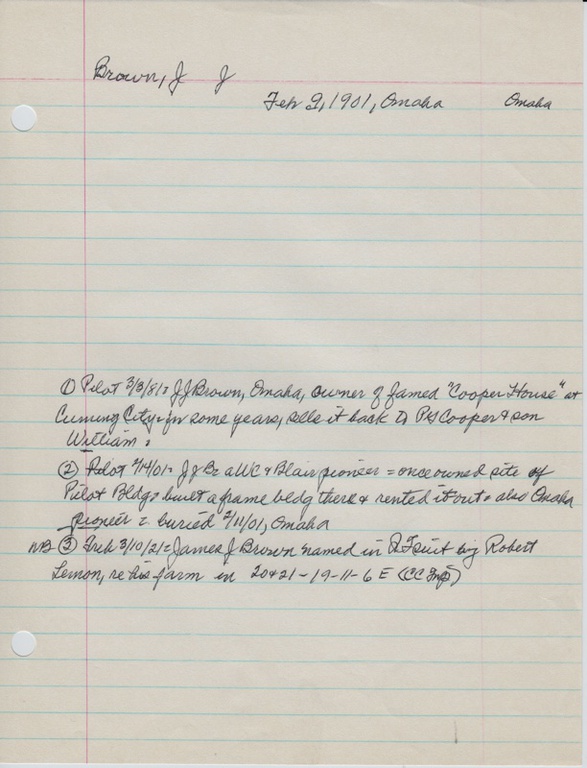 Brown, J J
Feb 9, 1901, Omaha Omaha
① Pilot 3/3/81= JJ Brown, Omaha, owner of famed "Cooper House" at
Cuming City= for some years, sells it back to PG Cooper & son
William.
② Pilot 2/14/01= JJ B= a WC & Blair pioneer = once owned site of
Pilot Bldg= built a frame bldg there & rented it out= also Omaha
pioneer = buried 2/11/01, Omaha
NB ③ 3/10/21= James J Brown named in suit by Robert
Lemon, re his farm in 20 & 21-19-11-6 E (CC)